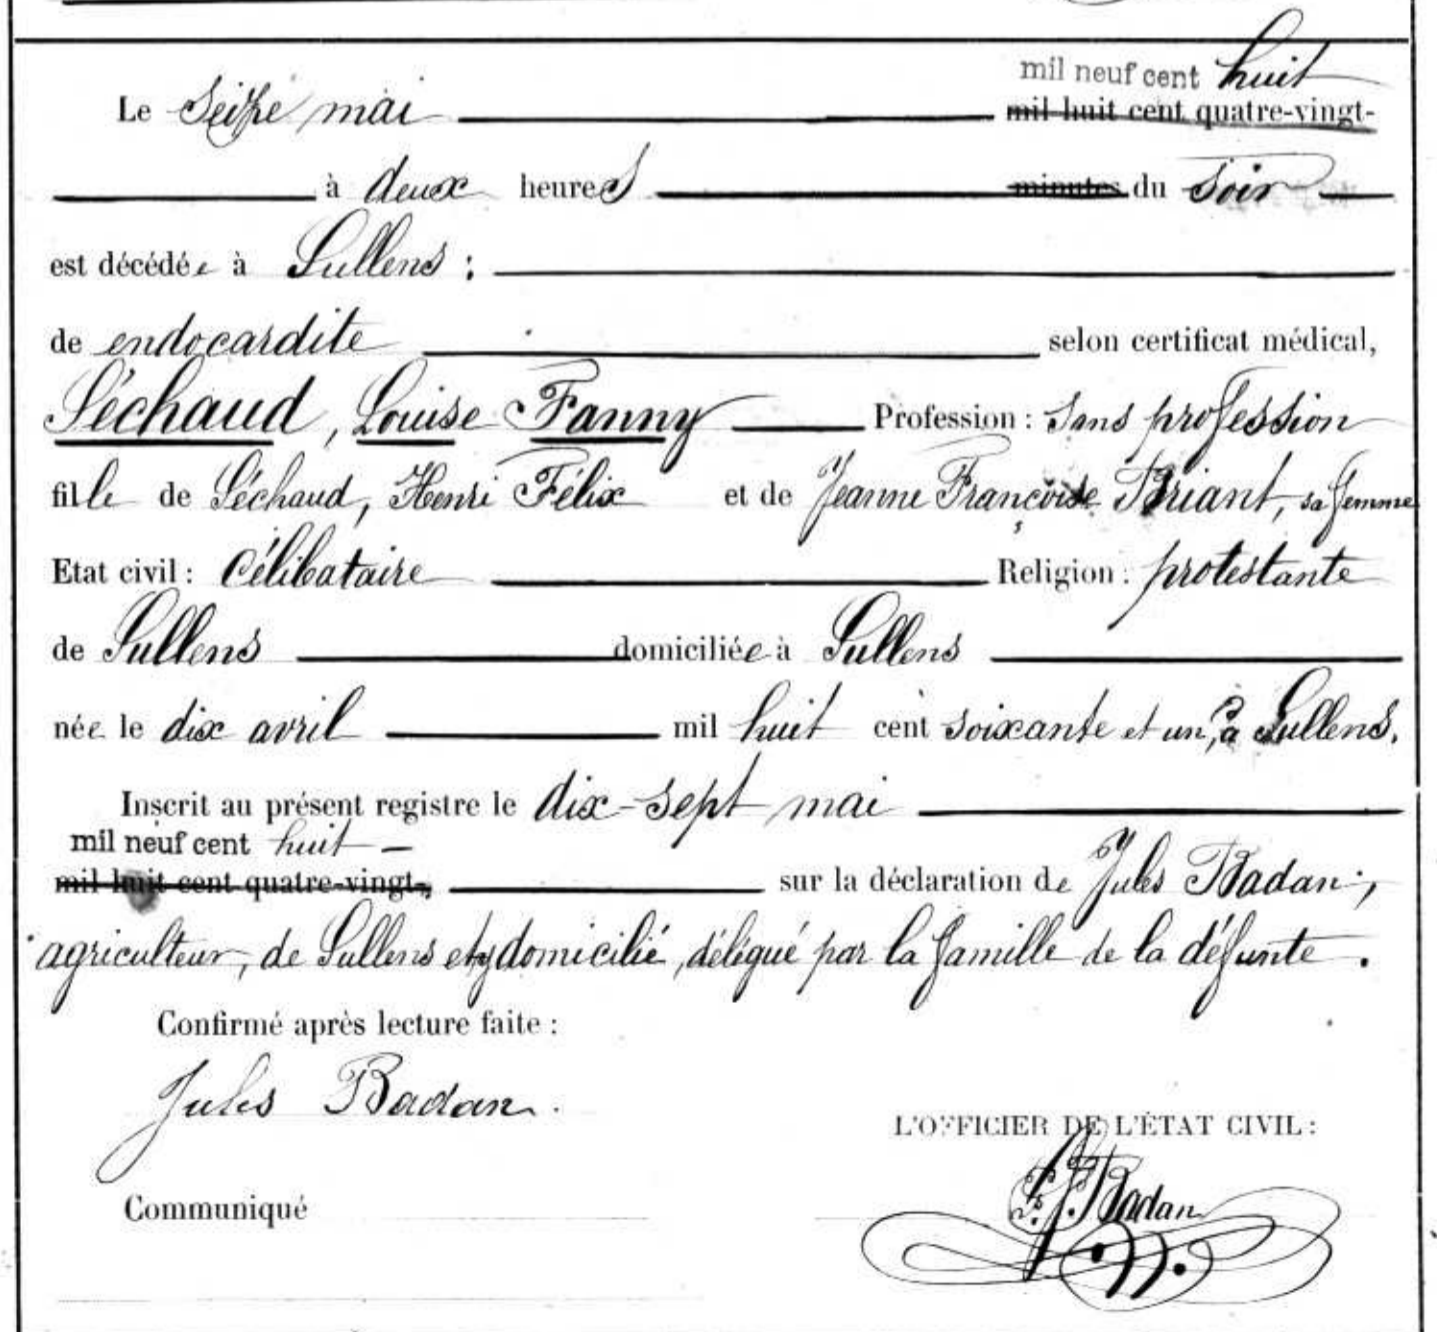 mil neuf cent huit
Le seize mai mil huit cent quatre-vingt-
à deux heures minutes du soir
est décédée à Sullens ;
de endocardite selon certificat médical,
Séchaud, Louise Fanny Profession : Sans profession
fille de Séchaud, Henri Félix et de Jeanne Françoise Briant, sa femme
Etat civil : Célibataire Religion : protestante
de Sullens domiciliée à Sullens
née le dix avril mil huit cent soixante et un, à Sullens.
Inscrit au présent registre le dix-sept mai
mil neuf cent huit –
mil huit cent quatre-vingt-, sur la déclaration de Jules Badan,
agriculteur, de Sullens et y domicilié, délégué par la famille de la défunte.
Confirmé après lecture faite :
Jules Badan.
L'OFFICIER DE L'ÉTAT CIVIL :
Badan
Communiqué